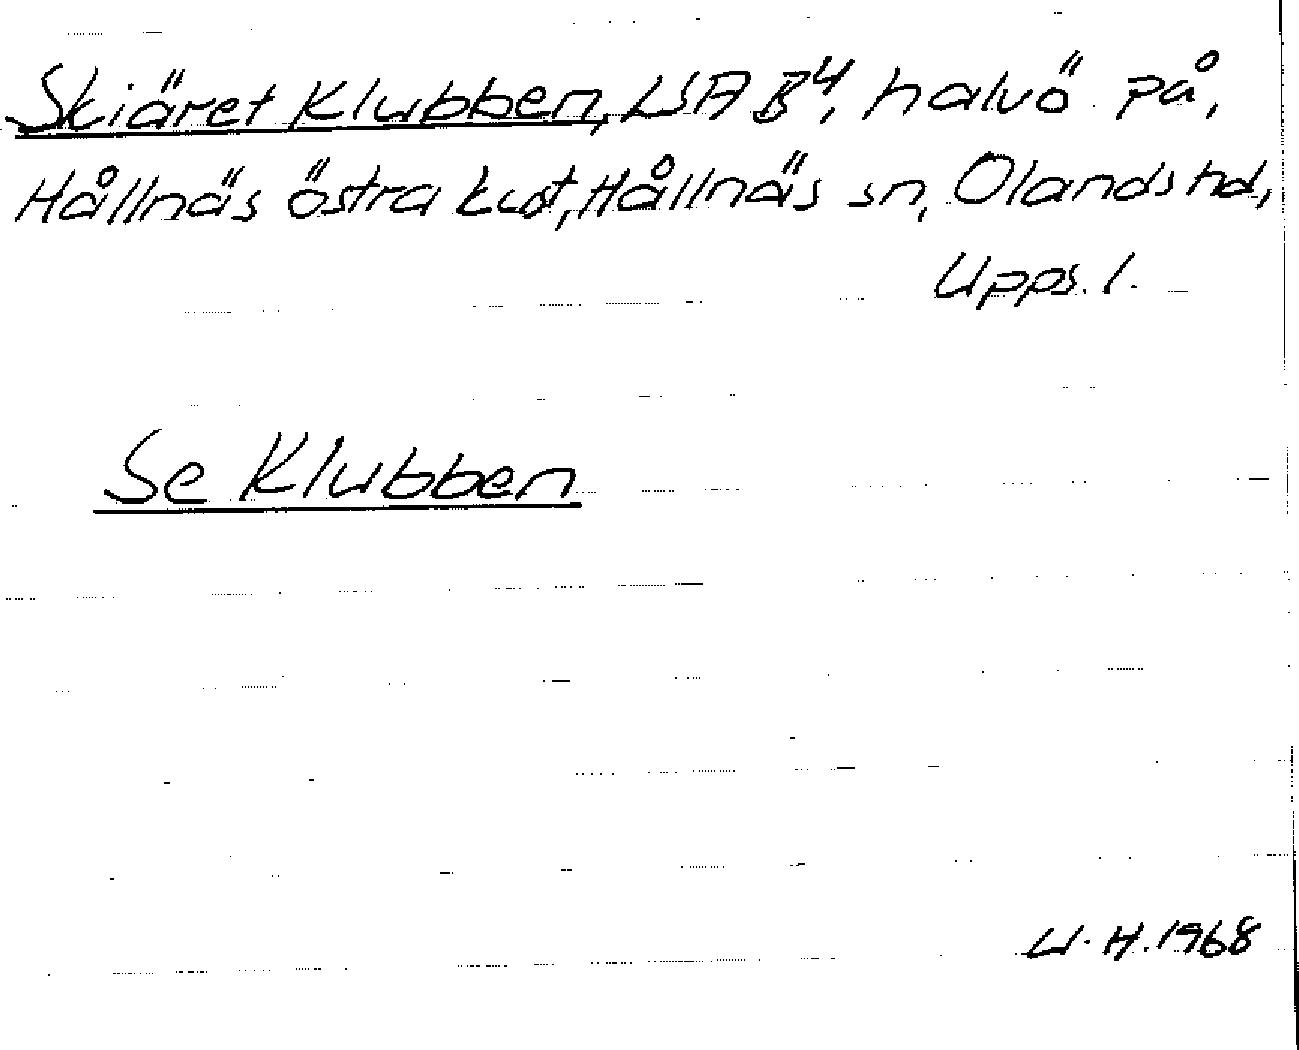 Skiäret Klubben, LSA B4, halvö på,
Hållnäs östra kust, Hållnäs sn, Olands hd,
Upps. l.
Se Klubben
W. H. 1968